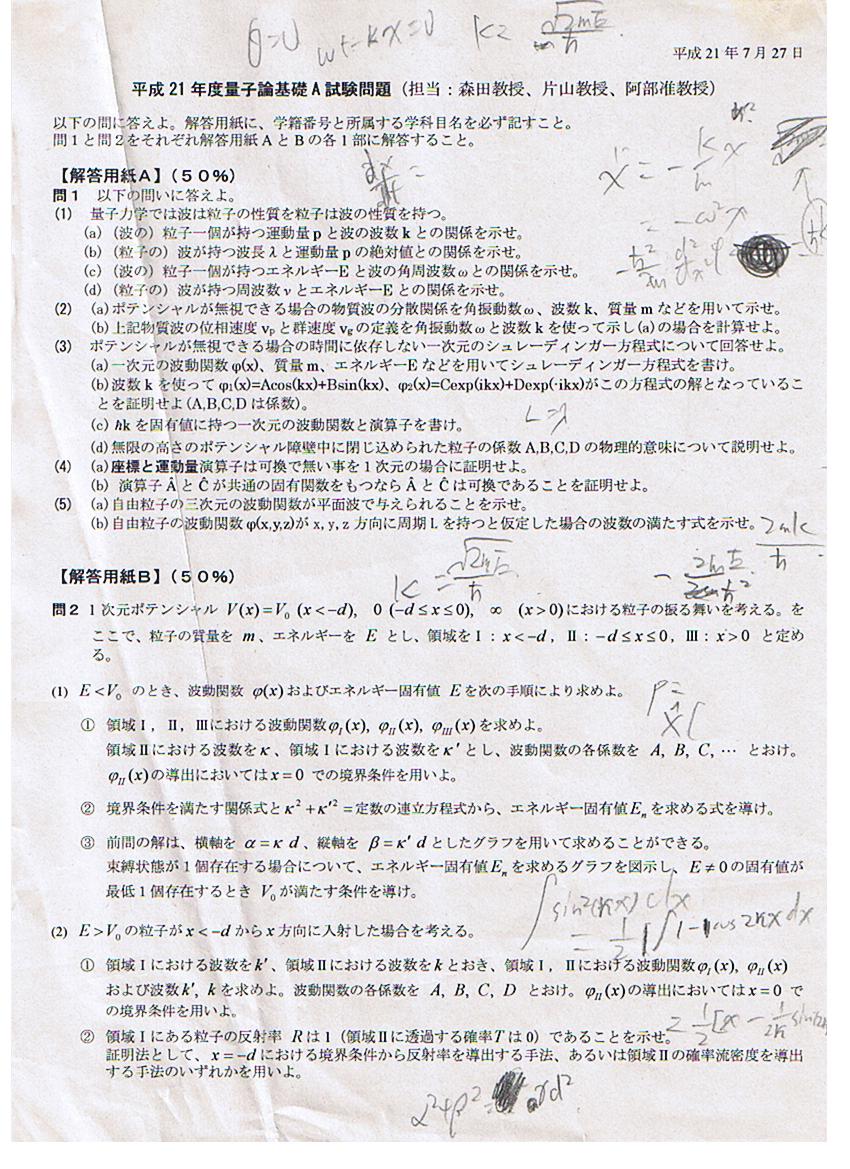 θ=0
ωt-kx=0
k=
√2mE
ħ
平成 21 年 7 月 27 日
平成 21 年度量子論基礎 A 試験問題（担当：森田教授、片山教授、阿部准教授）
以下の問に答えよ。解答用紙に、学籍番号と所属する学科目名を必ず記すこと。
問1と問2をそれぞれ解答用紙AとBの各1部に解答すること。
【解答用紙A】（50%）
問1 以下の問いに答えよ。
(1) 量子力学では波は粒子の性質を粒子は波の性質を持つ。
(a) (波の) 粒子一個が持つ運動量 p と波の波数 k との関係を示せ。
(b) (粒子の) 波が持つ波長 λ と運動量 p の絶対値との関係を示せ。
(c) (波の) 粒子一個が持つエネルギーE と波の角周波数 ω との関係を示せ。
(d) (粒子の) 波が持つ周波数 ν とエネルギーE との関係を示せ。
(2) (a)ポテンシャルが無視できる場合の物質波の分散関係を角振動数 ω、波数 k、質量 m などを用いて示せ。
(b)上記物質波の位相速度 vp と群速度 vg の定義を角振動数 ω と波数 k を使って示し(a)の場合を計算せよ。
(3) ポテンシャルが無視できる場合の時間に依存しない一次元のシュレーディンガー方程式について回答せよ。
(a)一次元の波動関数 φ(x)、質量 m、エネルギーE などを用いてシュレーディンガー方程式を書け。
(b)波数 k を使って φ1(x)=Acos(kx)+Bsin(kx)、φ2(x)=Cexp(ikx)+Dexp(-ikx)がこの方程式の解となっているこ
とを証明せよ(A,B,C,D は係数)。
(c) ħk を固有値に持つ一次元の波動関数と演算子を書け。
(d)無限の高さのポテンシャル障壁中に閉じ込められた粒子の係数 A,B,C,D の物理的意味について説明せよ。
(4) (a)座標と運動量演算子は可換で無い事を 1 次元の場合に証明せよ。
(b) 演算子 Â と Ĉ が共通の固有関数をもつなら Â と Ĉ は可換であることを証明せよ。
(5) (a)自由粒子の三次元の波動関数が平面波で与えられることを示せ。
(b)自由粒子の波動関数 φ(x,y,z)が x, y, z 方向に周期 L を持つと仮定した場合の波数の満たす式を示せ。
【解答用紙B】（50%）
k=√2mE
ħ
問2 1次元ポテンシャル V(x)=V₀ (x<-d), 0 (-d≤x≤0), ∞ (x>0)における粒子の振る舞いを考える。を
ここで、粒子の質量を m、エネルギーを E とし、領域を I：x<-d, II：-d≤x≤0, III：x>0 と定め
る。
(1) E<V₀ のとき、波動関数 φ(x)およびエネルギー固有値 E を次の手順により求めよ。
① 領域 I, II, IIIにおける波動関数φI(x), φII(x), φIII(x)を求めよ。
領域IIにおける波数をκ、領域Iにおける波数をκ'とし、波動関数の各係数を A, B, C, … とおけ。
φII(x)の導出においてはx=0 での境界条件を用いよ。
② 境界条件を満たす関係式とκ²+κ'²=定数の連立方程式から、エネルギー固有値Enを求める式を導け。
③ 前問の解は、横軸を α=κd、縦軸を β=κ'd としたグラフを用いて求めることができる。
束縛状態が1個存在する場合について、エネルギー固有値Enを求めるグラフを図示し、E≠0の固有値が
最低1個存在するとき V₀が満たす条件を導け。
∫sin²(kx)dx
=1/2∫1-cos2kxdx
(2) E>V₀の粒子がx<-dからx方向に入射した場合を考える。
① 領域Iにおける波数をk'、領域IIにおける波数をkとおき、領域I, IIにおける波動関数φI(x), φII(x)
および波数k', kを求めよ。波動関数の各係数を A, B, C, D とおけ。φII(x)の導出においてはx=0 で
の境界条件を用いよ。
② 領域Iにある粒子の反射率 Rは1（領域IIに透過する確率Tは0）であることを示せ。
証明法として、x=-dにおける境界条件から反射率を導出する手法、あるいは領域IIの確率流密度を導出
する手法のいずれかを用いよ。